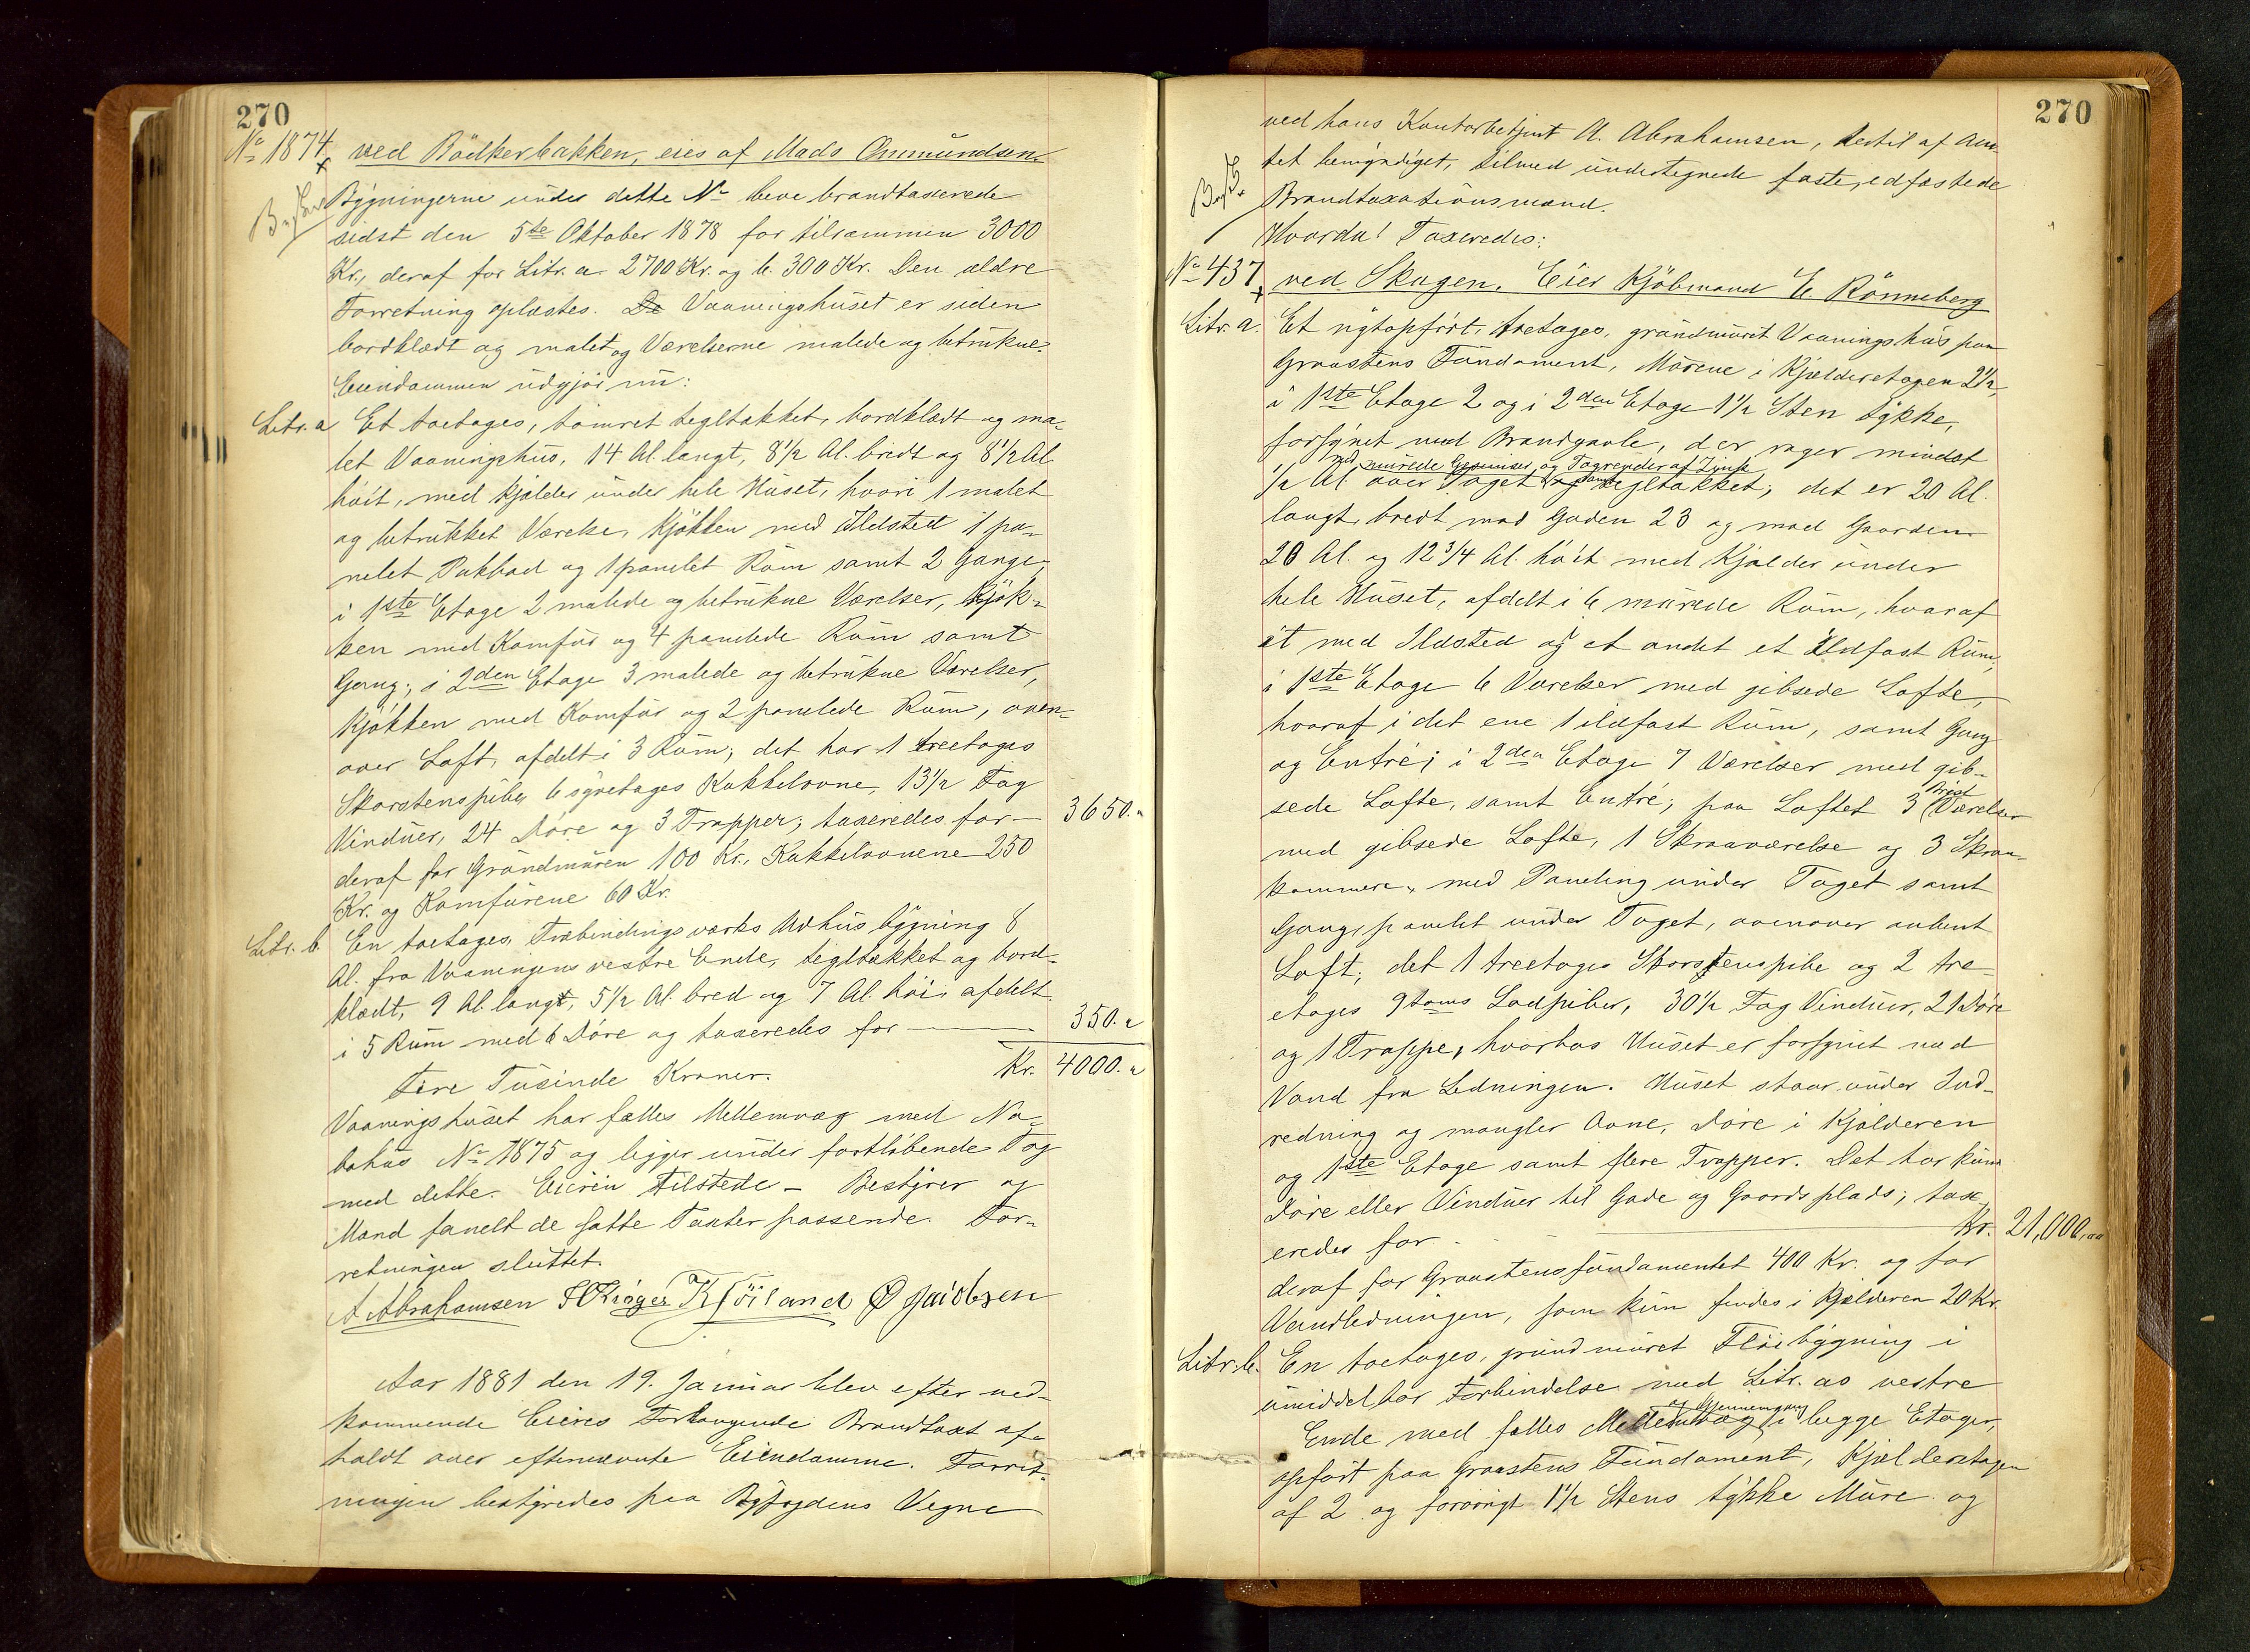 270
No 1874 ved Bödkerbakken, eies af Mads Ommundsen
Bygningerne under dette No bleve brandtaxerede
sidst den 5te Oktober 1878 for tilsammen 3000
Kr., deraf for Litr. a. 2700 Kr. og b. 300 Kr. Den ældre
Forretning oplæstes. De Vaaningshuset er siden
bordklædt og malet og Værelserne malede og betrukne.
Eiendommen udgjör nu:
Litr. a Et toetages, tömret tegltækket, bordklædt og ma-
let Vaaningshus, 14 Al. langt, 8 1/2 Al. bredt og 8 1/2 Al.
höit, med Kjælder under hele Huset, hvori 1 malet
og betrukket Værelse, Kjökken med Ildsted 1 pa-
nelet Pakbod og 1 panelet Rum samt 2 Gange,
i 1ste Etage 2 malede og betrukne Værelser, Kjök-
ken med Komfur og 4 panelede Rum samt
Gang; i 2den Etage 3 malede og betrukne Værelser,
Kjökken med Komfur og 2 panelede Rum, oven-
over Loft, afdelt i 3 Rum; det har 1 treetages
Skorstenspibe, 6 syvetages Kakkelovne, 13 1/2 Fag
Vinduer, 24 Döre og 3 Trapper; taxeredes for — 3650.
deraf for Grundmuren 100 Kr., Kakkelovnene 250
Kr. og Komfurene 60 Kr.
Litr. b En toetages, Træbindingsværks Udhusbygning 8
Al. fra Vaaningens vestre Ende, tegltækket og bord-
klædt, 9 Al. langt, 5 1/2 Al. bred og 7 Al. höi, afdelt
i 5 Rum med 6 Döre og taxeredes for — 350.
Fire Tusinde Kroner. Kr. 4000.
Vaaningshuset har fælles Mellemvæg med Na-
bohus No 1875 og ligger under fortlöbende Tag
med dette. Eieren tilstede — Bestyrer og
Mænd fandt de satte Taxter passende. For-
retningen sluttet.
A Abrahamsen Kjöiland Ø Jacobsen
Aar 1881 den 19. Januar blev efter ved-
kommende Eieres Forlangende Brandtaxt af-
holdt over efternævnte Eiendomme. Forret-
ningen bestyredes paa Byfogdens Vegne
270
ved hans Kontorbetjent A. Abrahamsen, dertil af Am-
tet bemyndiget, tilmed undertegnede faste, edfæstede
Brandtaxationsmænd.
Hvorda! Taxeredes:
No 437 ved Skagen. Eier Kjöbmand E. Rönneberg
Litr. a. Et nytopfört, toetages, grundmuret Vaaningshus paa
Graastens Fundament, Murene i Kjælderetagen 2 1/2,
i 1ste Etage 2 og i 2den Etage 1 1/2 Sten tykke,
forsynet med Brandgavle, der rager mindst
med murede Gesimser og Tagrender af Zink
1/2 Al. over Taget samt tegltækket; det er 20 Al.
langt, bredt mod Gaden 23 og mod Gaarden
20 Al. og 12 3/4 Al. höit med Kjælder under
hele Huset, afdelt i 6 murede Rum, hvoraf
et med Ildsted og et andet et ildfast Rum,
i 1ste Etage 6 Værelser med gibsede Lofte,
hvoraf i det ene 1 ildfast Rum, samt Gang
og Entré; i 2den Etage 7 Værelser med gib-
sede Lofte, samt Entré; paa Loftet 3 Kvist Værelser
med gibsede Lofte, 1 Skraaværelse og 3 Skraa-
kammere, med Paneling under Taget samt
Gang, panelet under Taget, ovenover aabent
Loft; det 1 treetages Skorstenspibe og 2 tre-
etages 9 toms Lodpiber, 30 1/2 Fag Vinduer, 21 Döre
og 1 Trappe, hvorhos Huset er forsynet med
Vand fra Ledningen. Huset staar under Ind-
redning og mangler Ovne, Döre i Kjælderen
og 1ste Etage samt flere Trapper. Det har kun
Döre eller Vinduer til Gade og Gaardsplads; tax-
eredes for — Kr. 21,000.
deraf for Graastensfundamentet 400 Kr. og for
Vandledningen, som kun findes i Kjælderen 20 Kr.
Litr. b. En toetages, grundmuret Flöibygning i
umiddelbar Forbindelse med Litr. as vestre
og Gjennemgang
Ende med fælles Mellemvæg i begge Etager,
opfört paa Graastens Fundament, Kjælderetagen
af 2 og forövrigt 1 1/2 Stens tykke Mure og